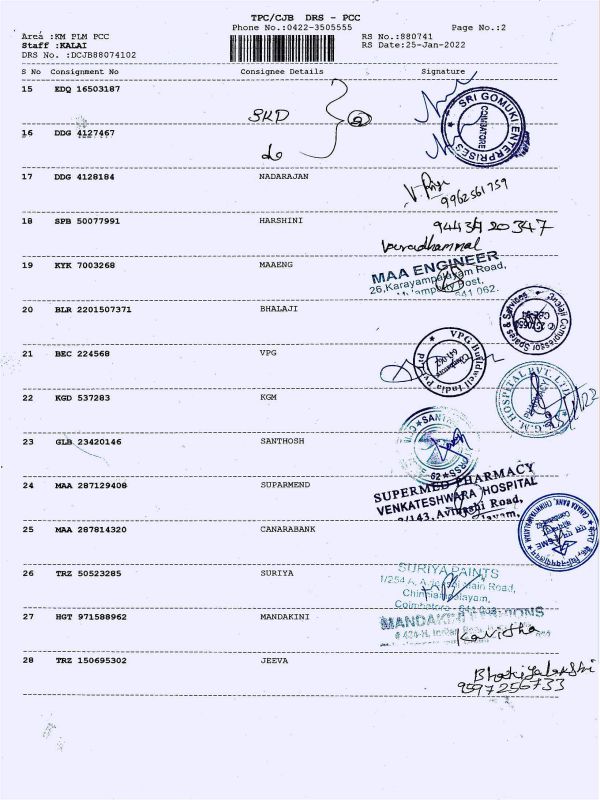 TPC/CJB DRS - PCC
Phone No.:0422-3505555 Page No.:2
Area :KM PLM PCC RS No.:880741
Staff :KALAI RS Date:25-Jan-2022
DRS No. :DCJB88074102
S No Consignment No Consignee Details Signature
15 EDQ 16503187
SKD
SRI GOMUKI ENTERPRISES
COIMBATORE
16 DDG 4127467
do
17 DDG 4128184 NADARAJAN
9962561759
18 SPB 50077991 HARSHINI
20347
19 KYK 7003268 MAAENG
MAA ENGINEER
26,Karayampalayam Road,
Post,
641 062.
20 BLR 2201507371 BHALAJI
Balaji Compressor Spares & Services
21 BEC 224568 VPG
VPG Buildwell India Pvt
22 KGD 537283 KGM
K.G.M. HOSPITAL PVT. LTD.
23 GLB 23420146 SANTHOSH
24 MAA 287129408 SUPARMEND
SUPERMED PHARMACY
VENKATESHWARA HOSPITAL
Road,
25 MAA 287814320 CANARABANK
CANARA BANK
26 TRZ 50523285 SURIYA
SURIYA PAINTS
1/254 A, Main Road,
Chinniampalayam,
Coimbatore
27 HGT 971588962 MANDAKINI
MANDAKINI
Kavitha
28 TRZ 150695302 JEEVA
9597256733